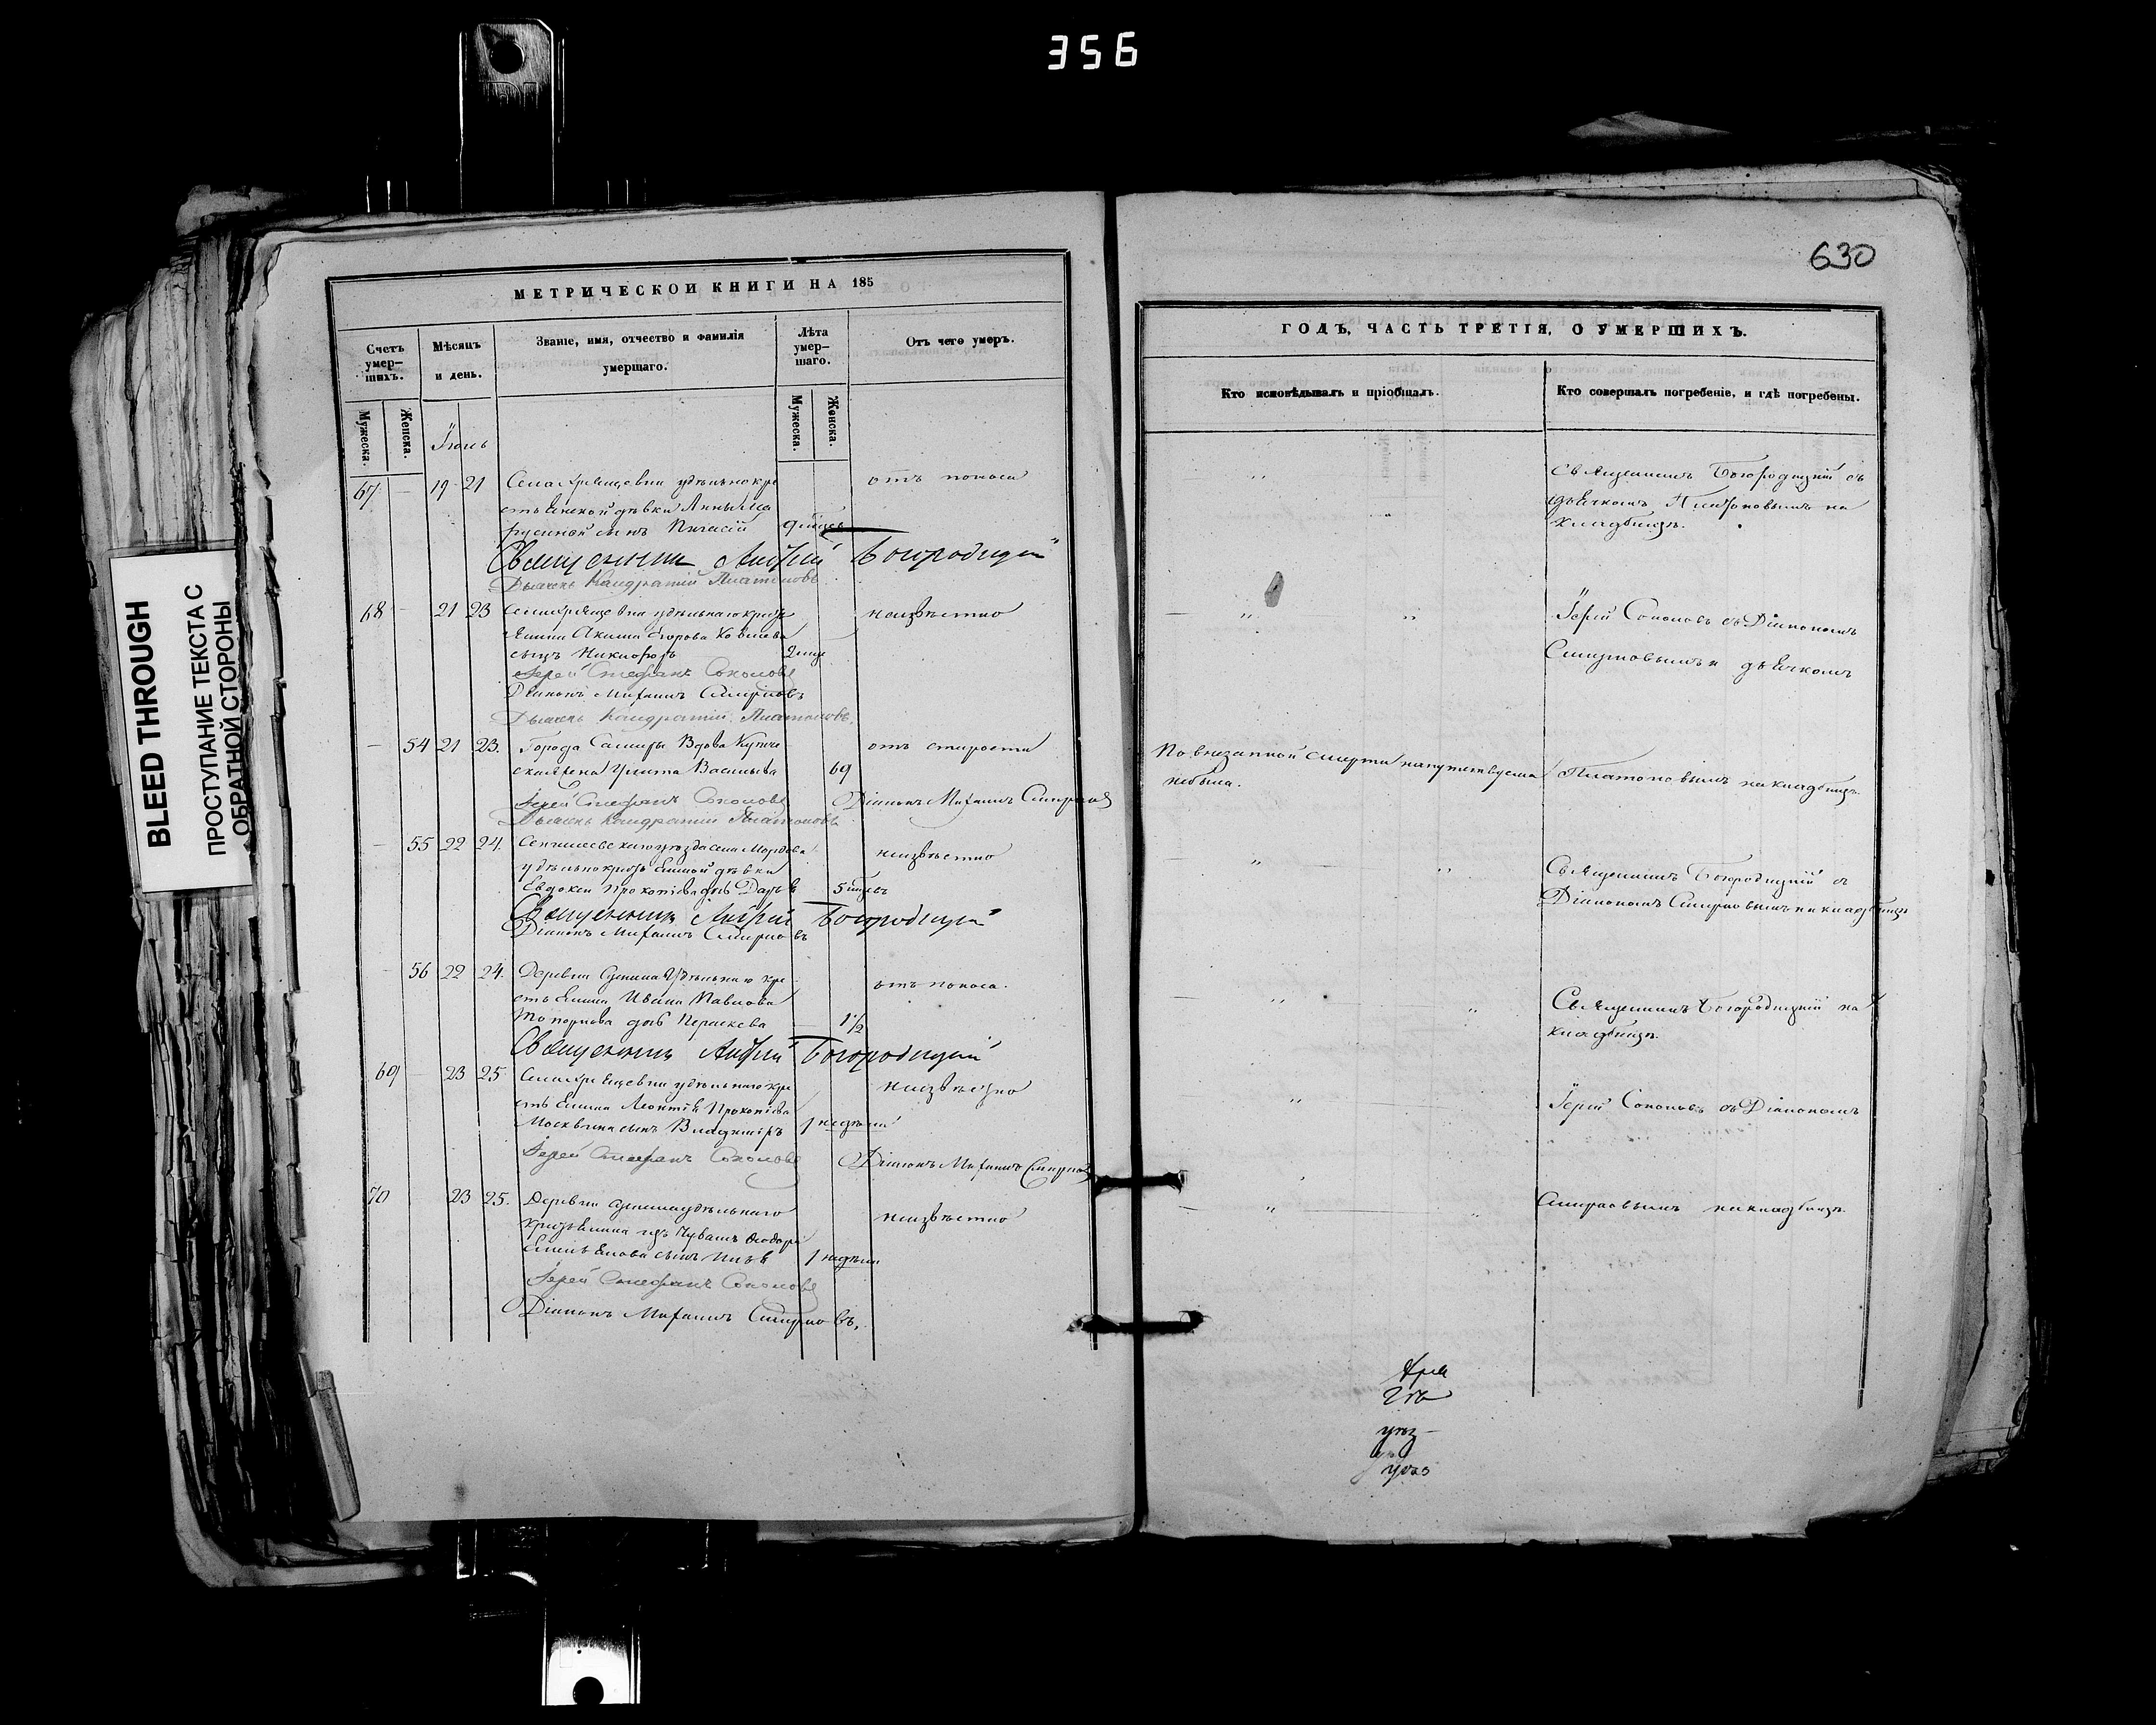 356
BLEED THROUGH
ПРОСТУПАНИЕ ТЕКСТА С
ОБРАТНОЙ СТОРОНЫ
МЕТРИЧЕСКОЙ КНИГИ НА 185
Счетъ умер-шихъ.
Мѣсяцъ и день.
Званіе, имя, отчество и фамилія умершаго.
Лѣта умер-шаго.
Отъ чего умеръ.
Мужеска.
Женска.
Мужеска.
Женска.
Іюль
67 — 19 21 Села удѣльно кре отъ поноса
стьянской дѣвки Анны
сынъ
Священникъ Андрей Богородицкій
Дьячекъ Кондратій Платоновъ
68 — 21 23 удѣльнаго кресть неизвѣстно
янина Акима Егорова
сынъ Никифоръ
Іерей Стефанъ Соколовъ
Діаконъ Михаилъ Смирновъ
Дьячекъ Кондратій Платоновъ
— 54 21 23. Города Самары Вдова Купче отъ старости
Васильева 69
Іерей Стефанъ Соколовъ Діаконъ Михаилъ Смирновъ
Дьячекъ Кондратій Платоновъ
— 55 22 24. уѣзда села неизвѣстно
дѣвки
Евдокіи Прокопьева дочь Дарья 5
Священникъ Андрей Богородицкій
Діаконъ Михаилъ Смирновъ
— 56 22 24. Деревни Удѣльнаго кре отъ поноса.
стьянина Ивана Павлова
дочь 1½
Священникъ Андрей Богородицкій
69 — 23 25 Села удѣльнаго кре неизвѣстно
стьянина Прокопьева
Москвина сынъ Владиміръ 1 недѣли
Іерей Стефанъ Соколовъ Діаконъ Михаилъ Смирновъ
70 23 25. Деревни удѣльнаго неизвѣстно
крестьянина изъ Чувашъ
сынъ 1 недѣли
Іерей Стефанъ Соколовъ
Діаконъ Михаилъ Смирновъ.
630
ГОДЪ, ЧАСТЬ ТРЕТІЯ, О УМЕРШИХЪ.
Кто исповѣдывалъ и пріобщалъ.
Кто совершалъ погребеніе, и гдѣ погребены.
Священникъ Богородицкій съ
дьячкомъ Платоновымъ на
кладбищѣ.
Іерей Соколовъ съ Діакономъ
Смирновымъ и дьячкомъ
По внезапной смерти напутствуема Платоновымъ на кладбищѣ.
небыла.
Священникъ Богородицкій съ
Діакономъ Смирновымъ на кладбищѣ
Священникъ Богородицкій на
кладбищѣ.
Іерей Соколовъ съ Діакономъ
Смирновымъ на кладбищѣ.